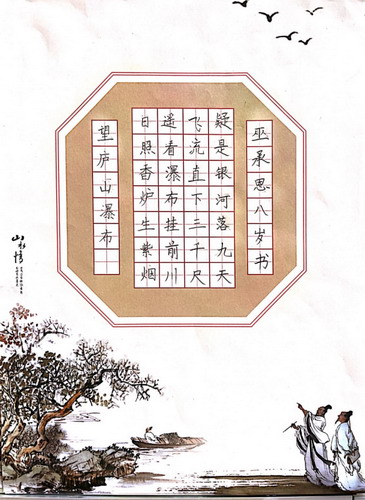 望庐山瀑布
日照香炉生紫烟
遥看瀑布挂前川
飞流直下三千尺
疑是银河落九天
巫承思八岁书
山水情